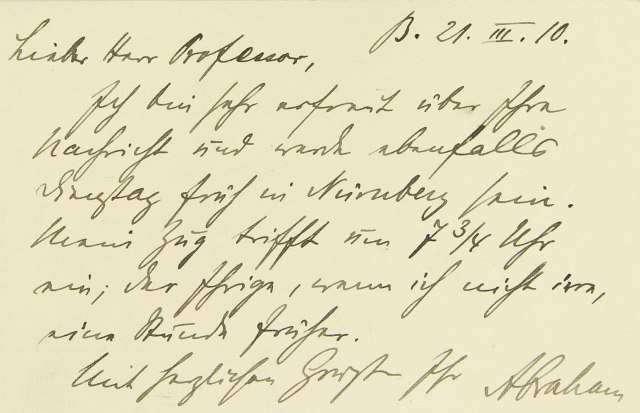 B. 21. III. 10.
Lieber Herr Professor,
Ich bin sehr erfreut über Ihre
Nachricht und werde ebenfalls
Dienstag früh in Nürnberg sein.
Mein Zug trifft um 7 3/4 Uhr
ein; der Ihrige, wenn ich nicht irre,
eine Stunde früher.
Mit herzlichem Gruß Ihr Abraham